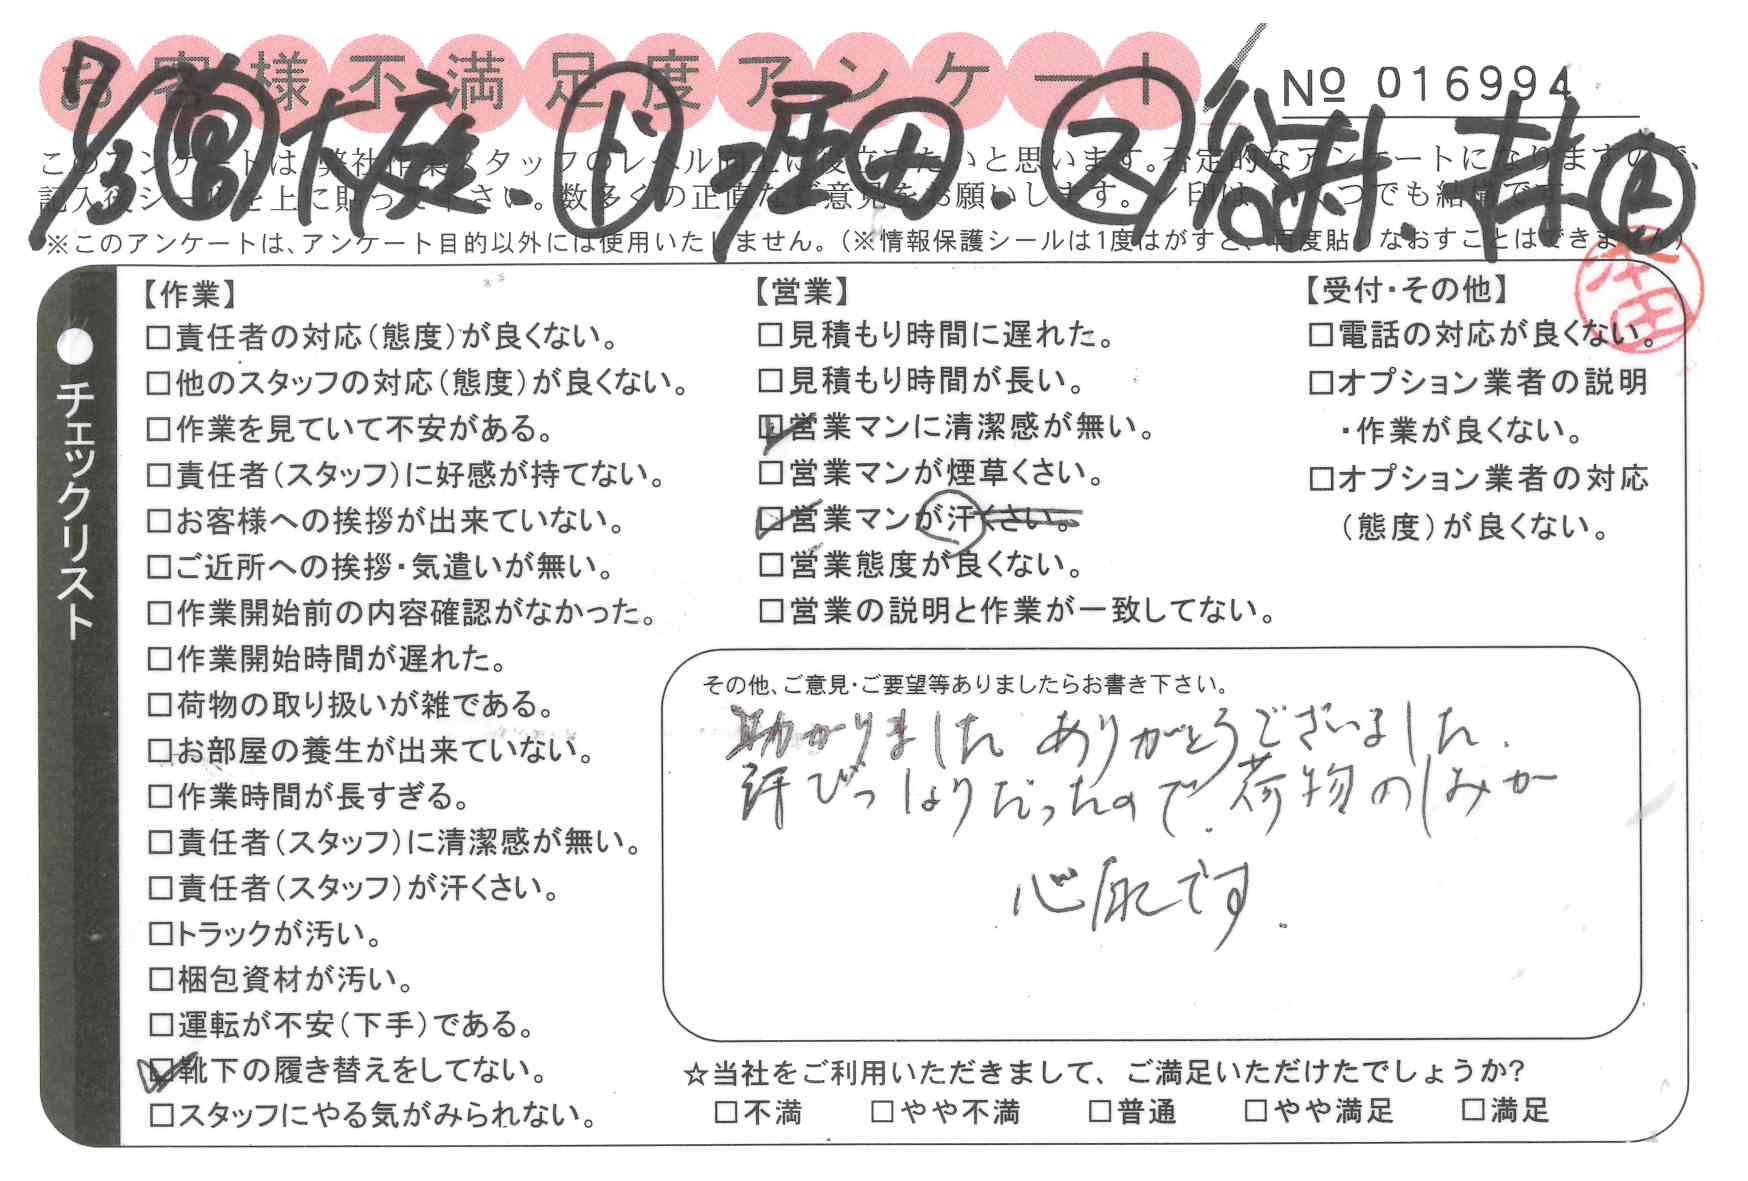 お客様不満足度アンケート
№ 016994
7/3 営 大庭. ド 堀田. ス
このアンケートは、弊社作業スタッフのレベル向上に役立てたいと思います。否定的なアンケートになりますので、
記入後シールを上に貼って下さい。数多くの正直なご意見をお願いします。レ印はいくつでも結構です。
※このアンケートは、アンケート目的以外には使用いたしません。(※情報保護シールは1度はがすと、再度貼りなおすことはできません)
本田
●チェックリスト
【作業】
□責任者の対応(態度)が良くない。
□他のスタッフの対応(態度)が良くない。
□作業を見ていて不安がある。
□責任者(スタッフ)に好感が持てない。
□お客様への挨拶が出来ていない。
□ご近所への挨拶・気遣いが無い。
□作業開始前の内容確認がなかった。
□作業開始時間が遅れた。
□荷物の取り扱いが雑である。
□お部屋の養生が出来ていない。
□作業時間が長すぎる。
□責任者(スタッフ)に清潔感が無い。
□責任者(スタッフ)が汗くさい。
□トラックが汚い。
□梱包資材が汚い。
□運転が不安(下手)である。
☑靴下の履き替えをしてない。
□スタッフにやる気がみられない。
【営業】
□見積もり時間に遅れた。
□見積もり時間が長い。
☑営業マンに清潔感が無い。
□営業マンが煙草くさい。
☑営業マンが汗くさい。
□営業態度が良くない。
□営業の説明と作業が一致してない。
【受付・その他】
□電話の対応が良くない。
□オプション業者の説明
・作業が良くない。
□オプション業者の対応
(態度)が良くない。
その他、ご意見・ご要望等ありましたらお書き下さい。
助かりました ありがとうございました.
汗びっしょりだったので. 荷物のしみが
心配です.
☆当社をご利用いただきまして、ご満足いただけたでしょうか?
□不満 □やや不満 □普通 □やや満足 □満足